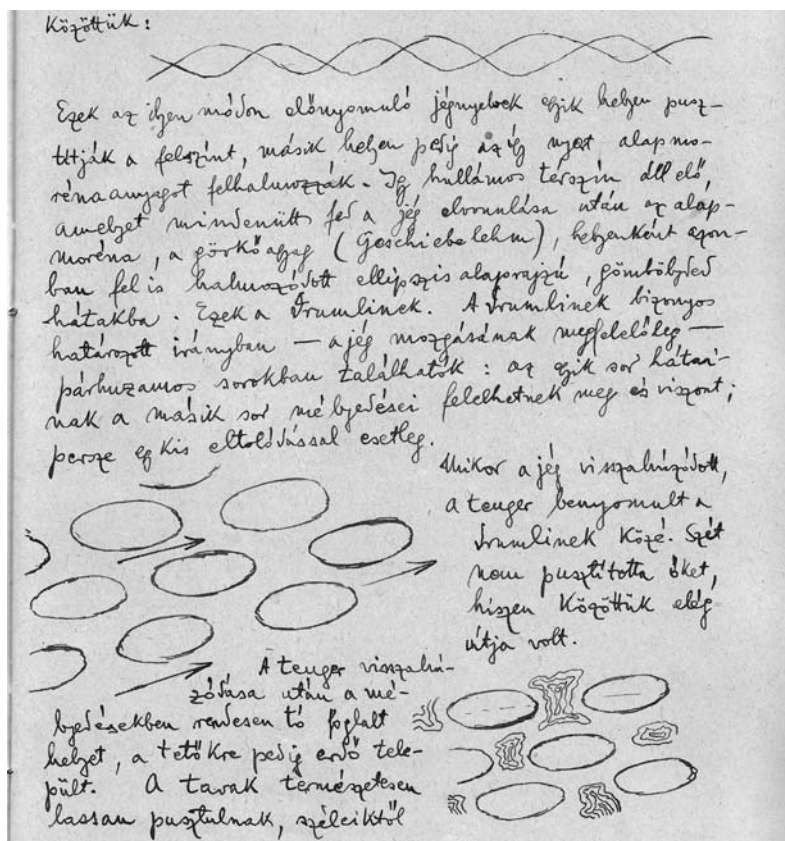 Közöttük:
Ezek az ilyen módon előnyomuló jégnyelvek egyik helyen pusz-
títják a felszínt, másik helyen pedig az így nyert alapmo-
rénaanyagot felhalmozzák. Így hullámos térszín áll elő,
amelyet mindenütt fed a jég elvonulása után az alap-
moréna, a görkőagyag (Geschiebelehm), helyenként azon-
ban fel is halmozódott ellipszis alaprajzú, gömbölyded
hátakba. Ezek a Drumlinek. A Drumlinek bizonyos
határozott irányban — a jég mozgásának megfelelőleg —
párhuzamos sorokban találhatók: az egyik sor hátai-
nak a másik sor mélyedései felelhetnek meg és viszont;
persze egy kis eltolódással esetleg.
Mikor a jég visszahúzódott,
a tenger benyomult a
Drumlinek közé. Szét
nem pusztította őket,
hiszen közöttük elég
útja volt.
A tenger visszahú-
zódása után a mé-
lyedésekben rendesen tó foglalt
helyet, a tetőkre pedig erdő tele-
pült. A tavak természetesen
lassan pusztulnak, széleiktől